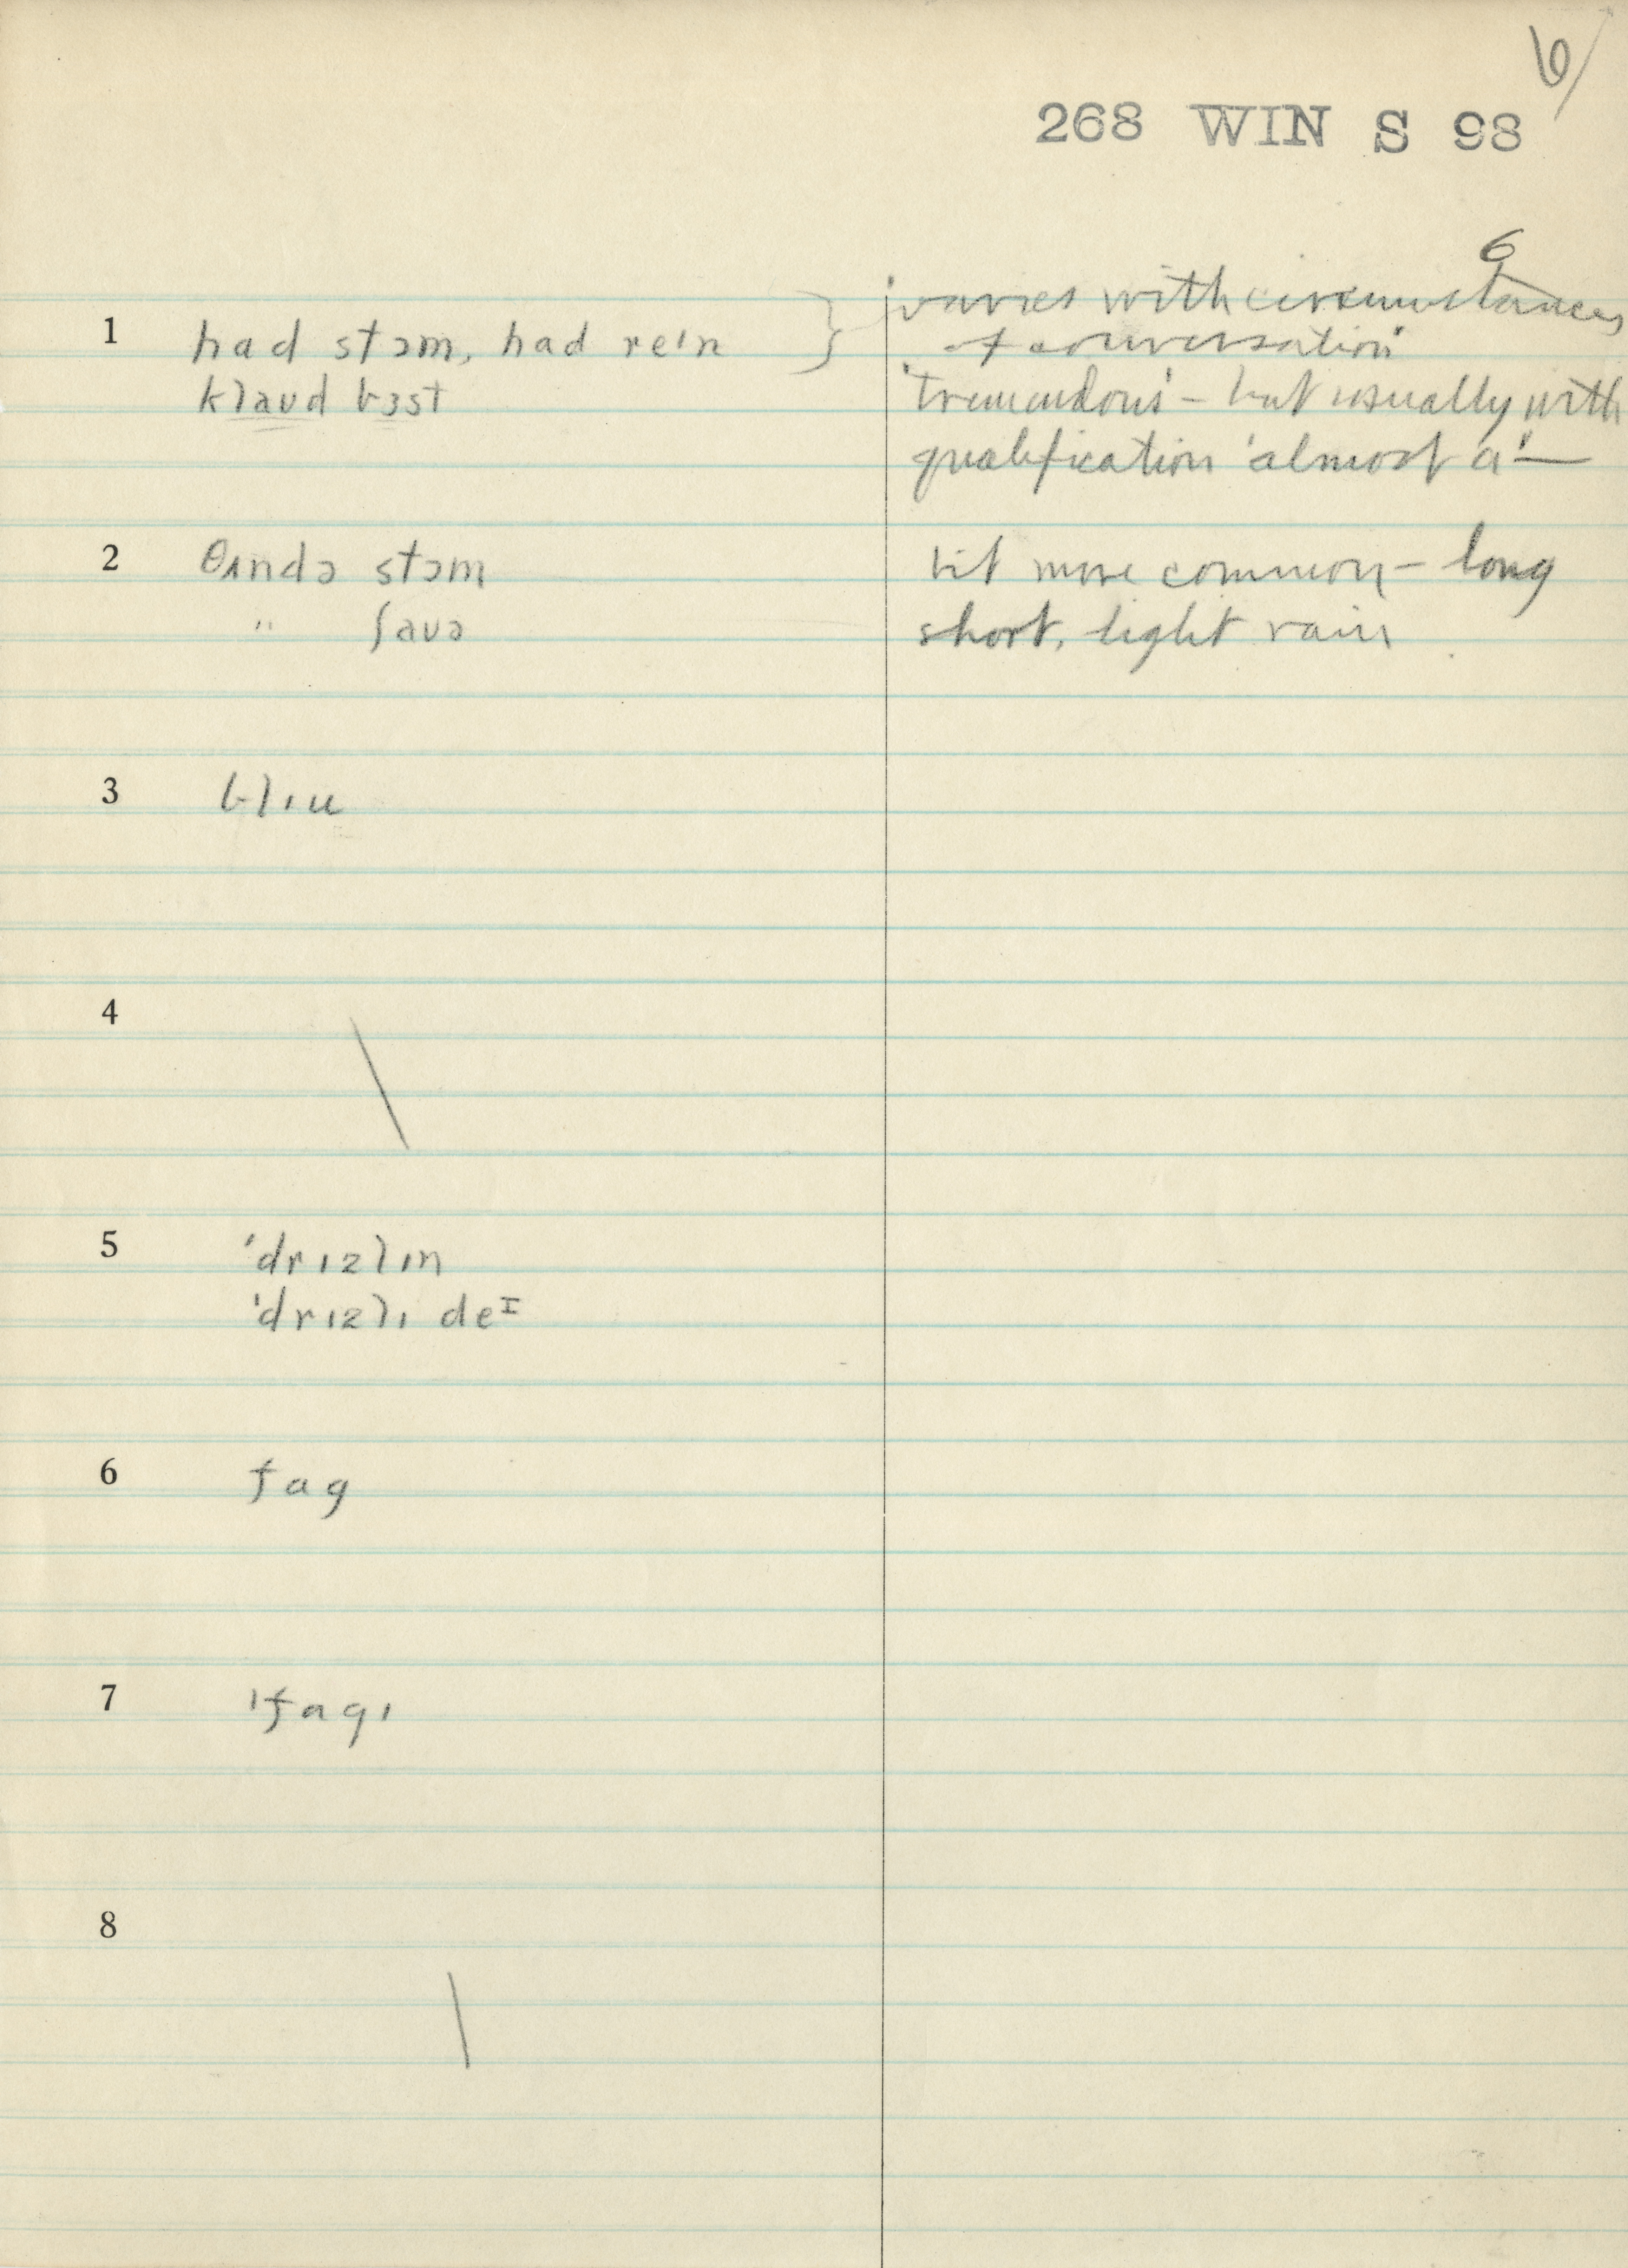 6/
268 WIN S 98
6
1 had stɔm, had reɪn } 'varies with circumstances
of conversation'
klaʊd bɜst 'tremendous' – but usually with
qualification 'almost a' —
2 θʌndə stɔm bit more common – long
" ʃaʊə short, light rain
3 blɪu
4 \
5 ˈdrɪzlɪn
ˈdrɪzlɪ deᴵ
6 fag
7 ˈfagɪ
8 \